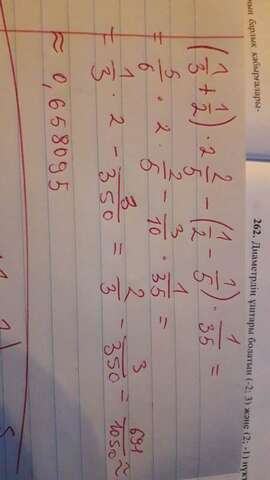 ның барлық қабырғалары-
262. Диаметрлің ұштары болатын (-2; 3) және (2; -1) нүкт
(1/3 + 1/2) · 2 2/5 - (1/2 - 1/5) · 1/35 =
= 5/6 · 2 · 2/5 - 3/10 · 1/35 =
= 1/3 · 2 - 3/350 = 2/3 - 3/350 = 691/1050 ≈
≈ 0,658095